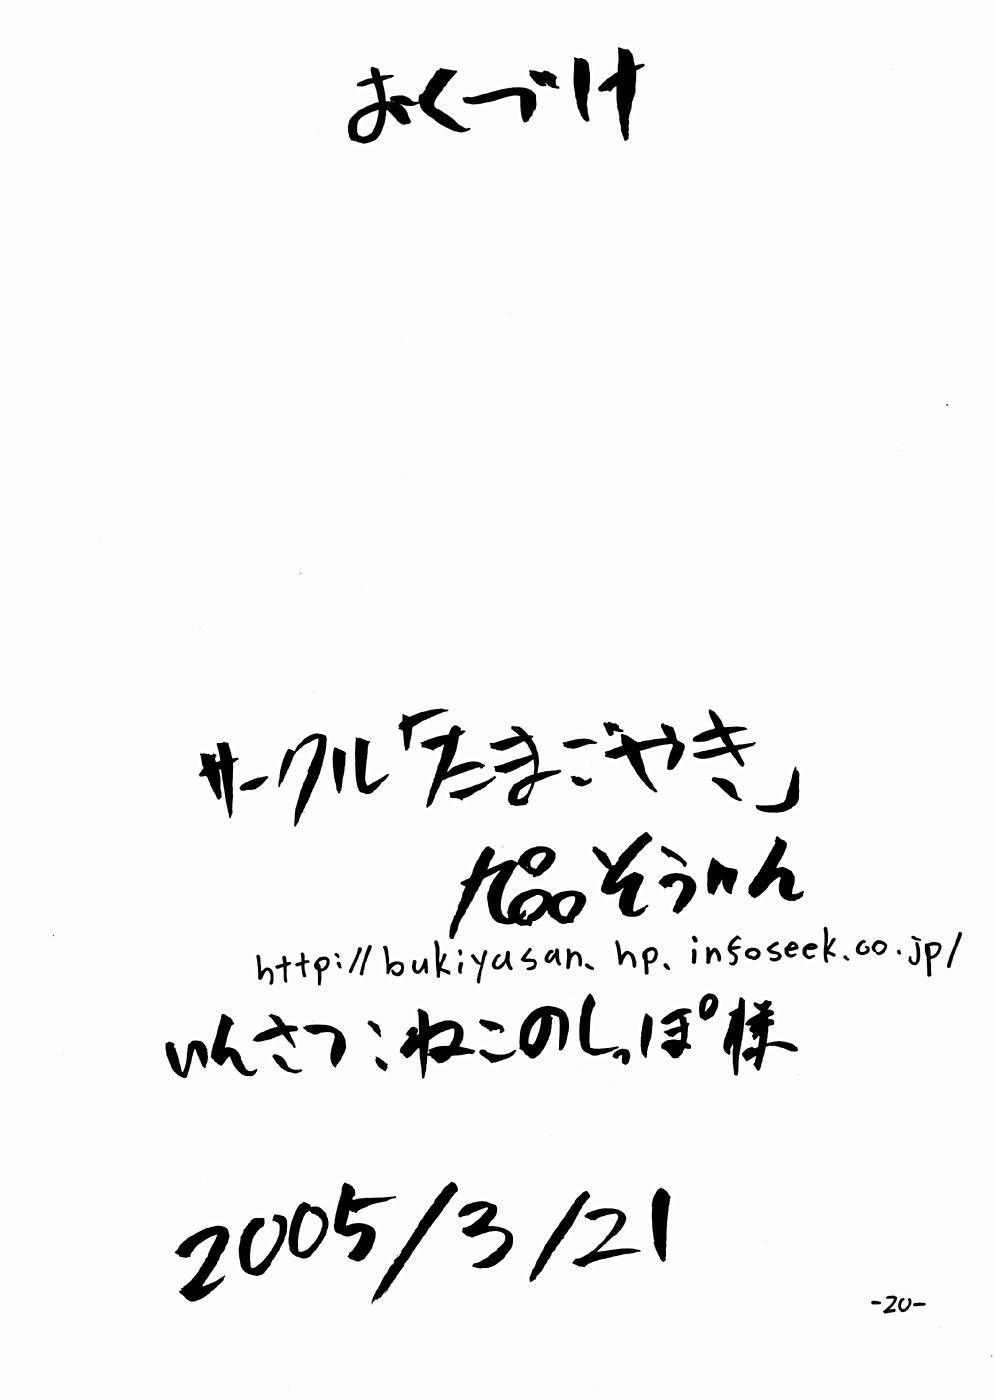 おくづけ
サークル「たまごやき」
そうけん
http://bukiyasan.hp.infoseek.co.jp/
いんさつ:ねこのしっぽ様
2005/3/21
-20-